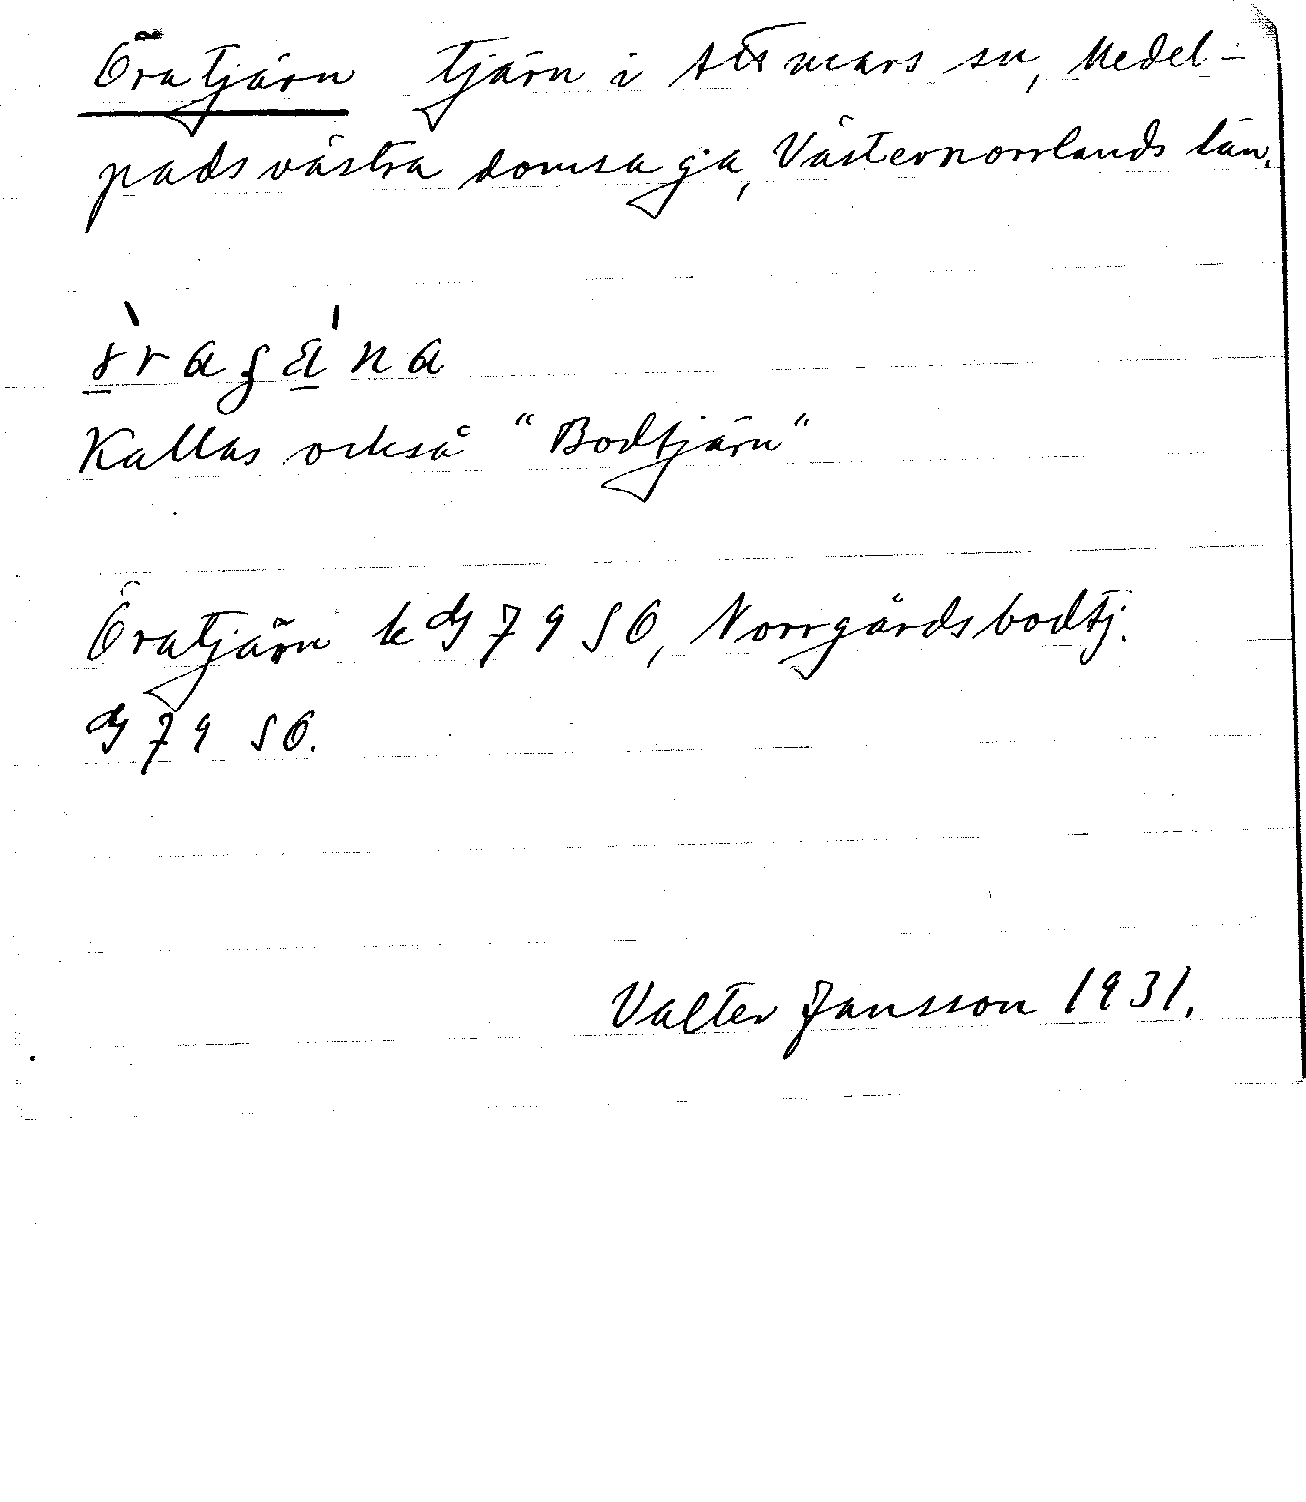 Öratjärn tjärn i Attmars sn, Medel-
pads västra domsaga, Västernorrlands län.
Kallas också "Bodtjärn"
Öratjärn k dg 79 SO, Norrgårdsbodtj.
dg 79 SO.
Valter Jansson 1931.